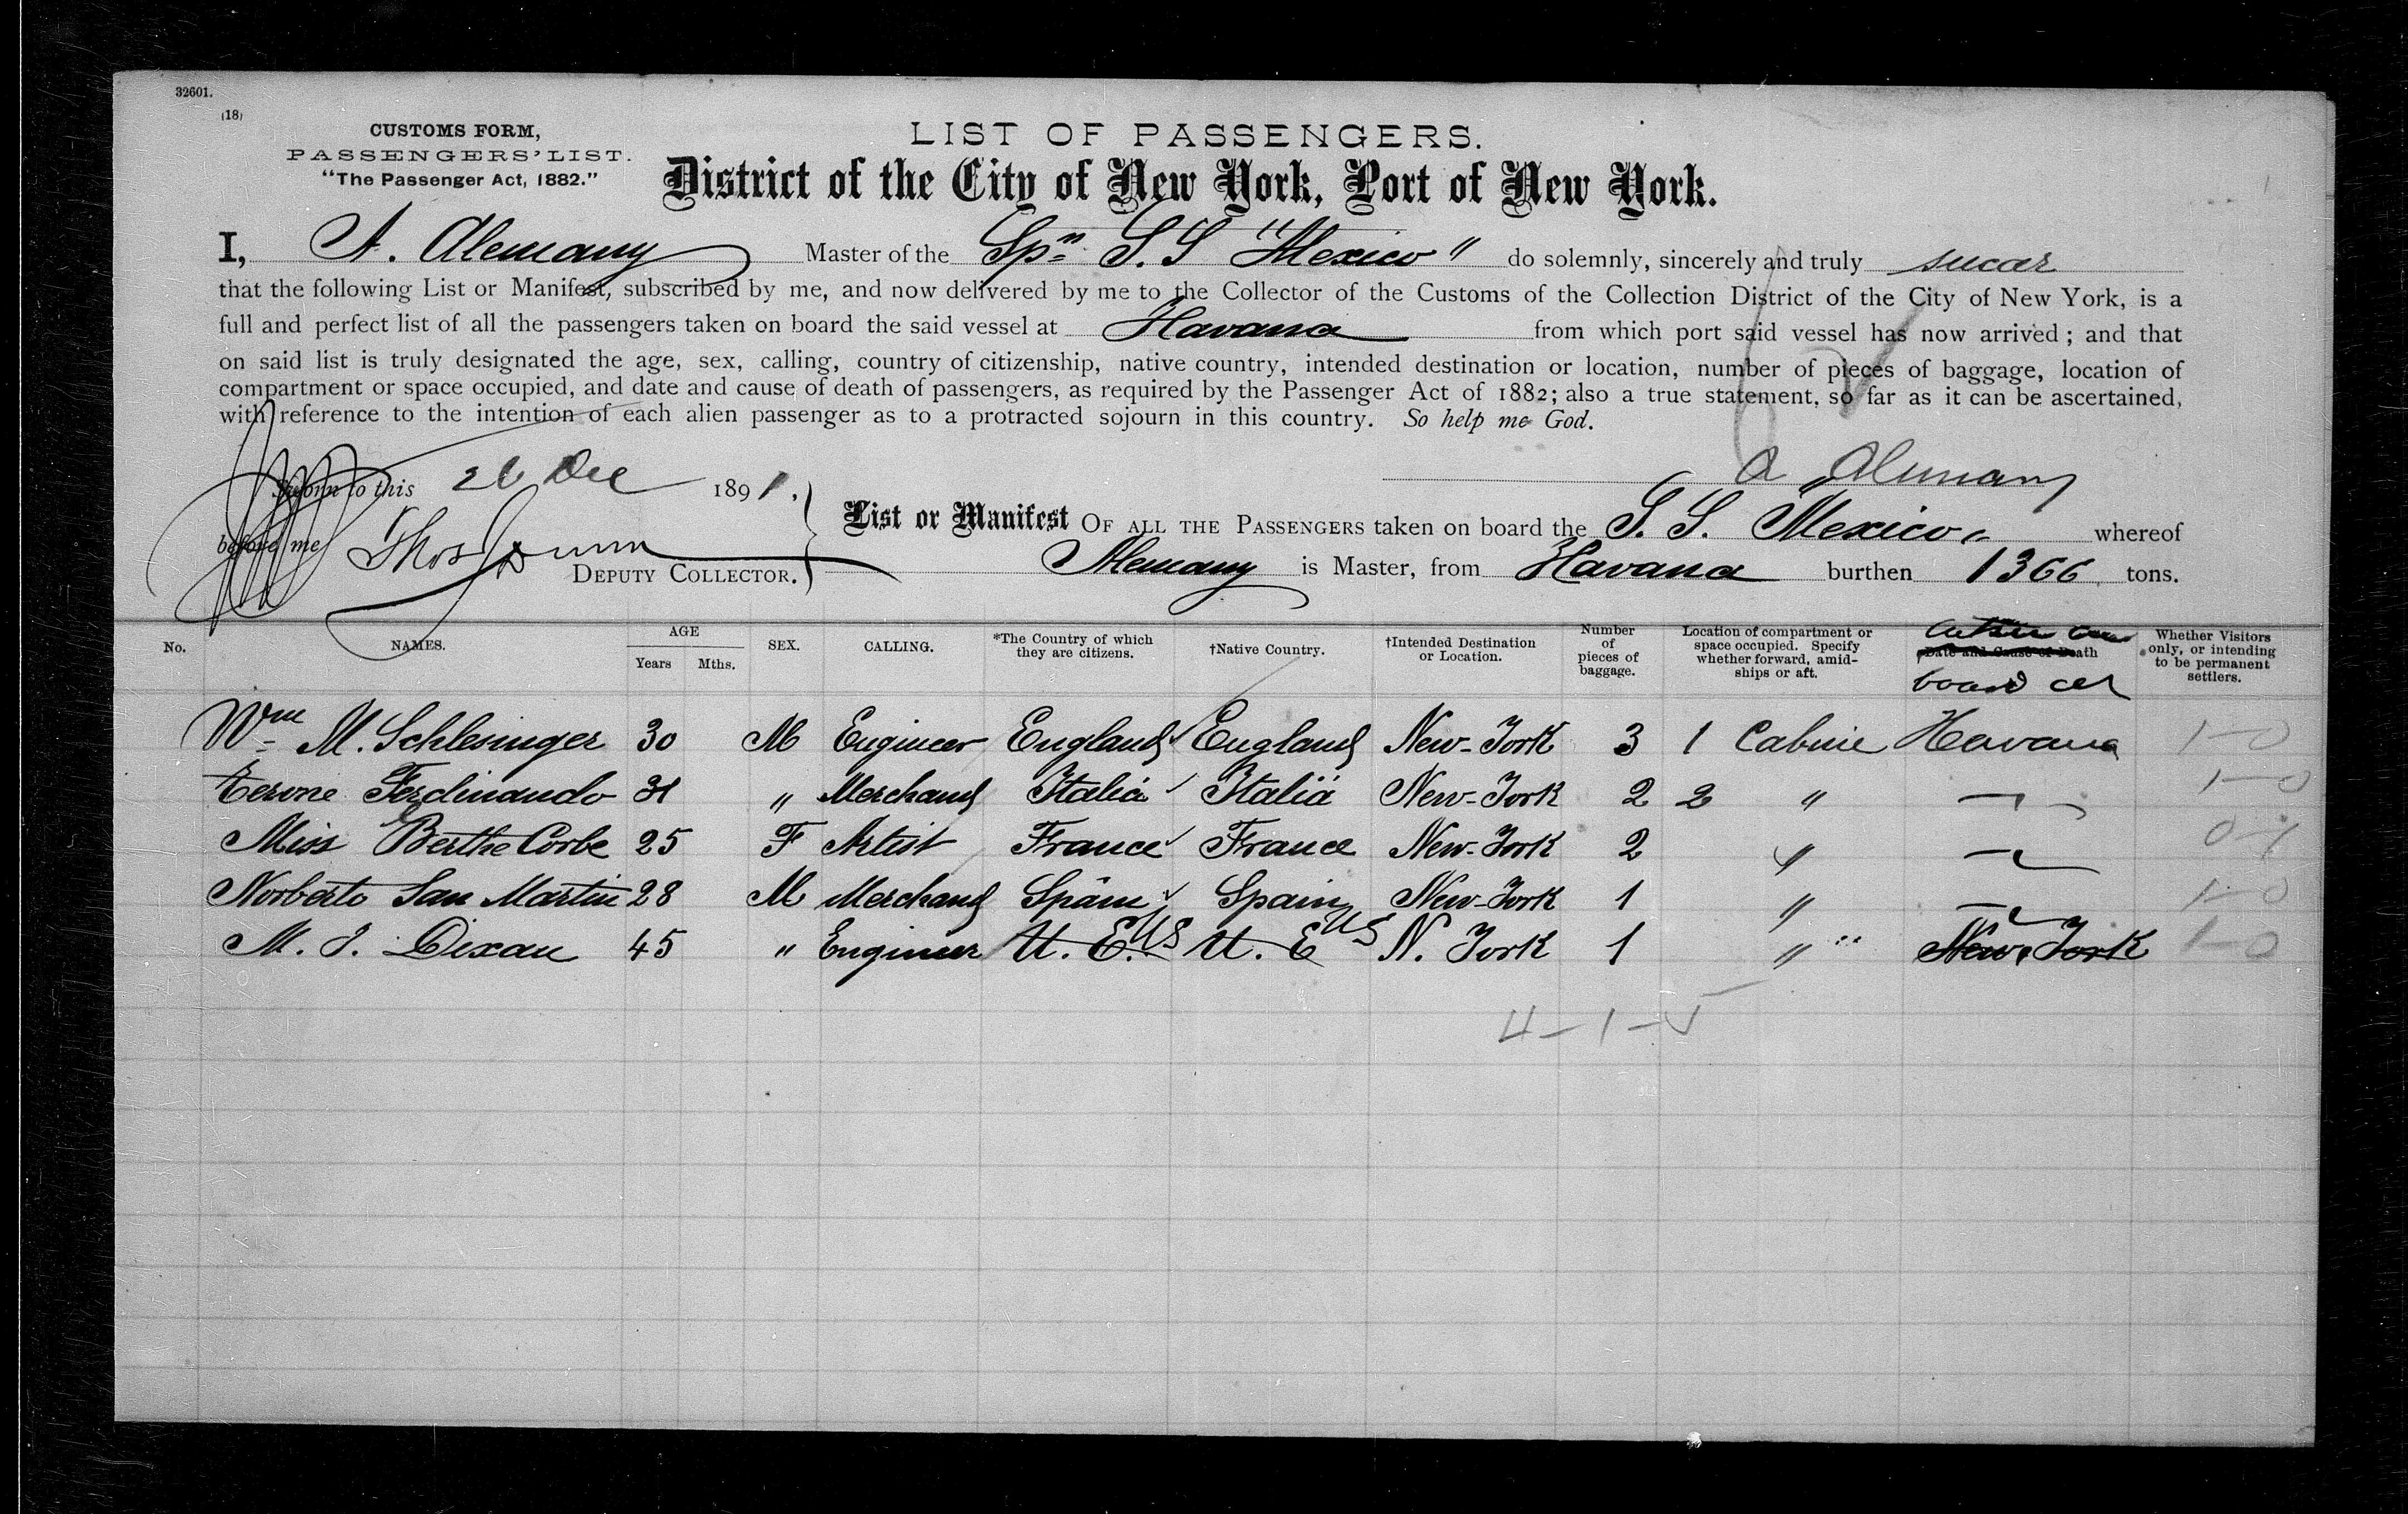 32601.
(18)
CUSTOMS FORM,
PASSENGERS' LIST.
"The Passenger Act, 1882."
LIST OF PASSENGERS.
District of the City of New York, Port of New York.
I, A. Alemany Master of the Spn S.S "Mexico" do solemnly, sincerely and truly swear
that the following List or Manifest, subscribed by me, and now delivered by me to the Collector of the Customs of the Collection District of the City of New York, is a
full and perfect list of all the passengers taken on board the said vessel at Havana from which port said vessel has now arrived; and that
on said list is truly designated the age, sex, calling, country of citizenship, native country, intended destination or location, number of pieces of baggage, location of
compartment or space occupied, and date and cause of death of passengers, as required by the Passenger Act of 1882; also a true statement, so far as it can be ascertained,
with reference to the intention of each alien passenger as to a protracted sojourn in this country. So help me God.
A Alemany
Sworn to this 26 Dec 1891.
before me Thos Dunn
DEPUTY COLLECTOR.
List or Manifest OF ALL THE PASSENGERS taken on board the S. S. "Mexico" whereof
Alemany is Master, from Havana burthen 1366 tons.
No. NAMES. AGE Years Mths. SEX. CALLING. *The Country of which they are citizens. †Native Country. †Intended Destination or Location. Number of pieces of baggage. Location of compartment or space occupied. Specify whether forward, amidships or aft. Date and Cause of Death board at Whether Visitors only, or intending to be permanent settlers.
Wm M. Schlesinger 30 M Engineer England England New-York 3 1 Cabine Havana 1-0
Ferdinando 31 " Merchand Italia Italia New-York 2 2 " 1-0
Miss Berthe Corbe 25 F Artist France France New-York 2 " 0-1
Norberto San Martin 28 M Merchand Spain Spain New-York 1 " 1-0
M. J. Dixau 45 " Engineer U. E. US U. E US N. York 1 " New York 1-0
4-1-5